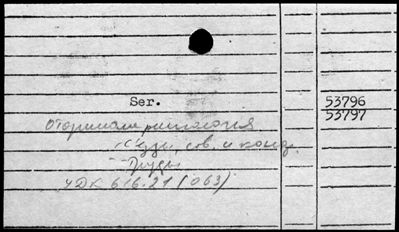 Ser.
53796
53797
Оториноларингология
съезды, сов. и конф.
Труды
УДК 616.21 (063)